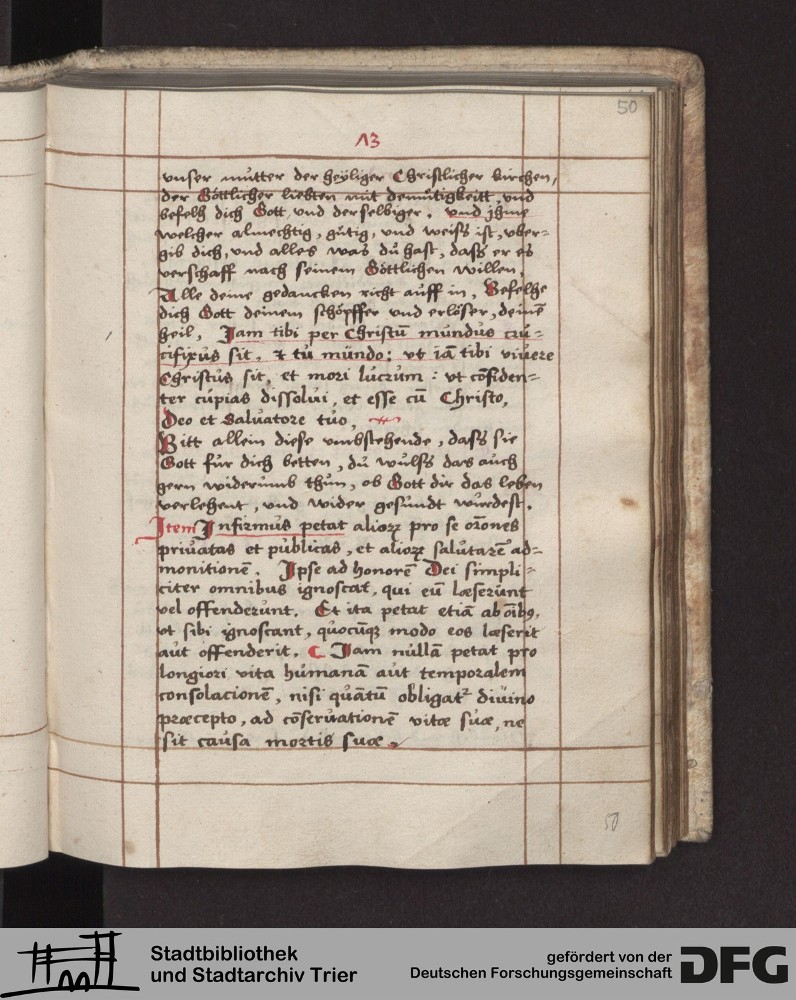 50
13
vnser mutter der heyliger Christlicher kirchen,
der Göttlicher liebten mit demütigkeitt, vnd
befelh dich Gott vnd derselbiger, vnd jhme
welcher almechtig, gütig, vnd weiss ist, vber-
gib dich, vnd alles was dü hast, dass er es
verschaff nach seinem Göttlichen willen,
Alle deine gedancken richt aüff in, Befelhe
dich Gott deinem schöpffer vnd erlöser, deinē
heil, Jam tibi per Christū mündus crü-
cifixüs sit, & tü mündo: vt iā tibi viüere
Christüs sit, et mori lücrüm: vt cōfiden-
ter cüpias dissolüi, et esse cū Christo,
Deo et Salüatore tüo,
Bitt allein diese vmbstehende, dass sie
Gott für dich betten, dü wülss das aüch
gern widerümb thün, ob Gott dir das leben
verlehent, vnd wider gesündt würdest.
Item Infirmüs petat alioꝝ pro se orōnes
priüatas et püblicas, et alioꝝ salütarē ad-
monitionē. Ipse ad honorē Dei simpli-
citer omnibus ignoscat, qui eū læserünt
vel offenderünt. Et ita petat etiā ab oībꝰ,
vt sibi ignoscant, qüocüqꝫ modo eos læserit
aüt offenderit. C Iam nüllā petat pro
longiori vita hümanā aüt temporalem
consolacionē, nisi qüātū obligatꝛ diüino
præcepto, ad cōserüationē vitæ süæ, ne
sit caüsa mortis süæ.
50
Stadtbibliothek
und Stadtarchiv Trier
gefördert von der
Deutschen Forschungsgemeinschaft
DFG